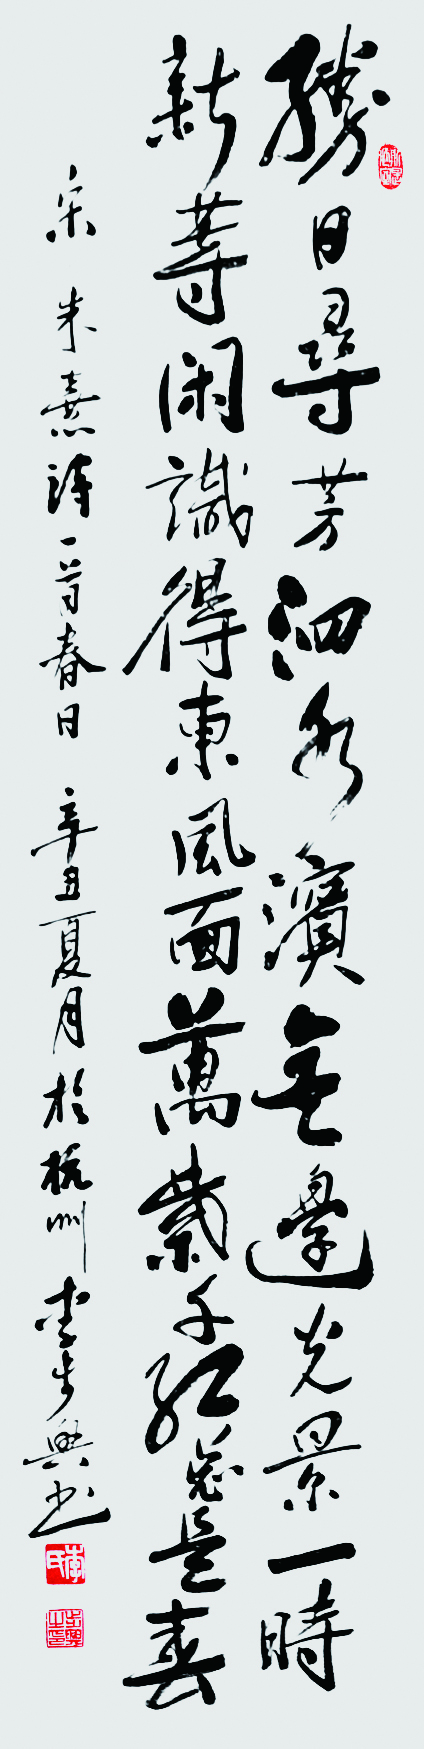 勝日尋芳泗水濱無邊光景一時
新等閑識得東風面萬紫千紅總是春
宋朱熹詩一首春日 辛丑夏月於杭州李步興书
李氏